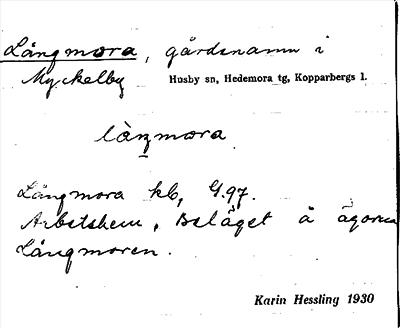 Långmora, gårdsnamn i
Myckelby Husby sn, Hedemora tg, Kopparbergs l.
làŋmora
Långmora kb, G.97.
Arbetshem, Beläget å ägorna
Långmoren.
Karin Hessling 1930